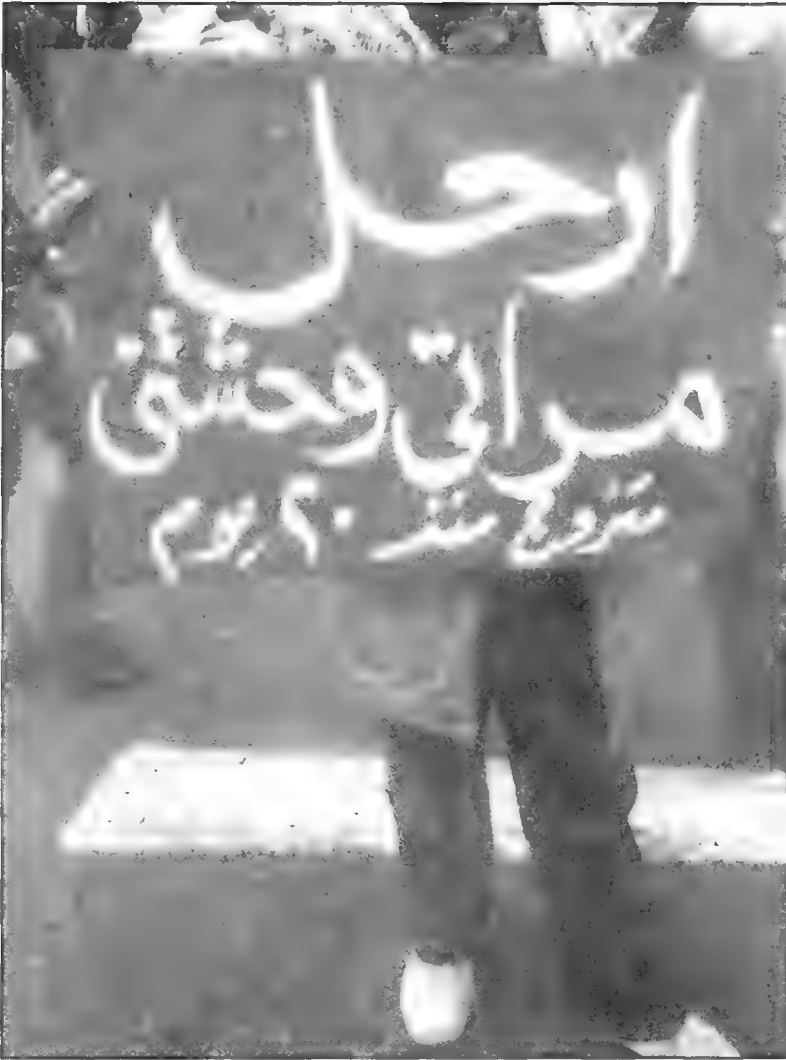 ارحل
مراتى وحشتنى
متزوج منذ ٢٠ يوم